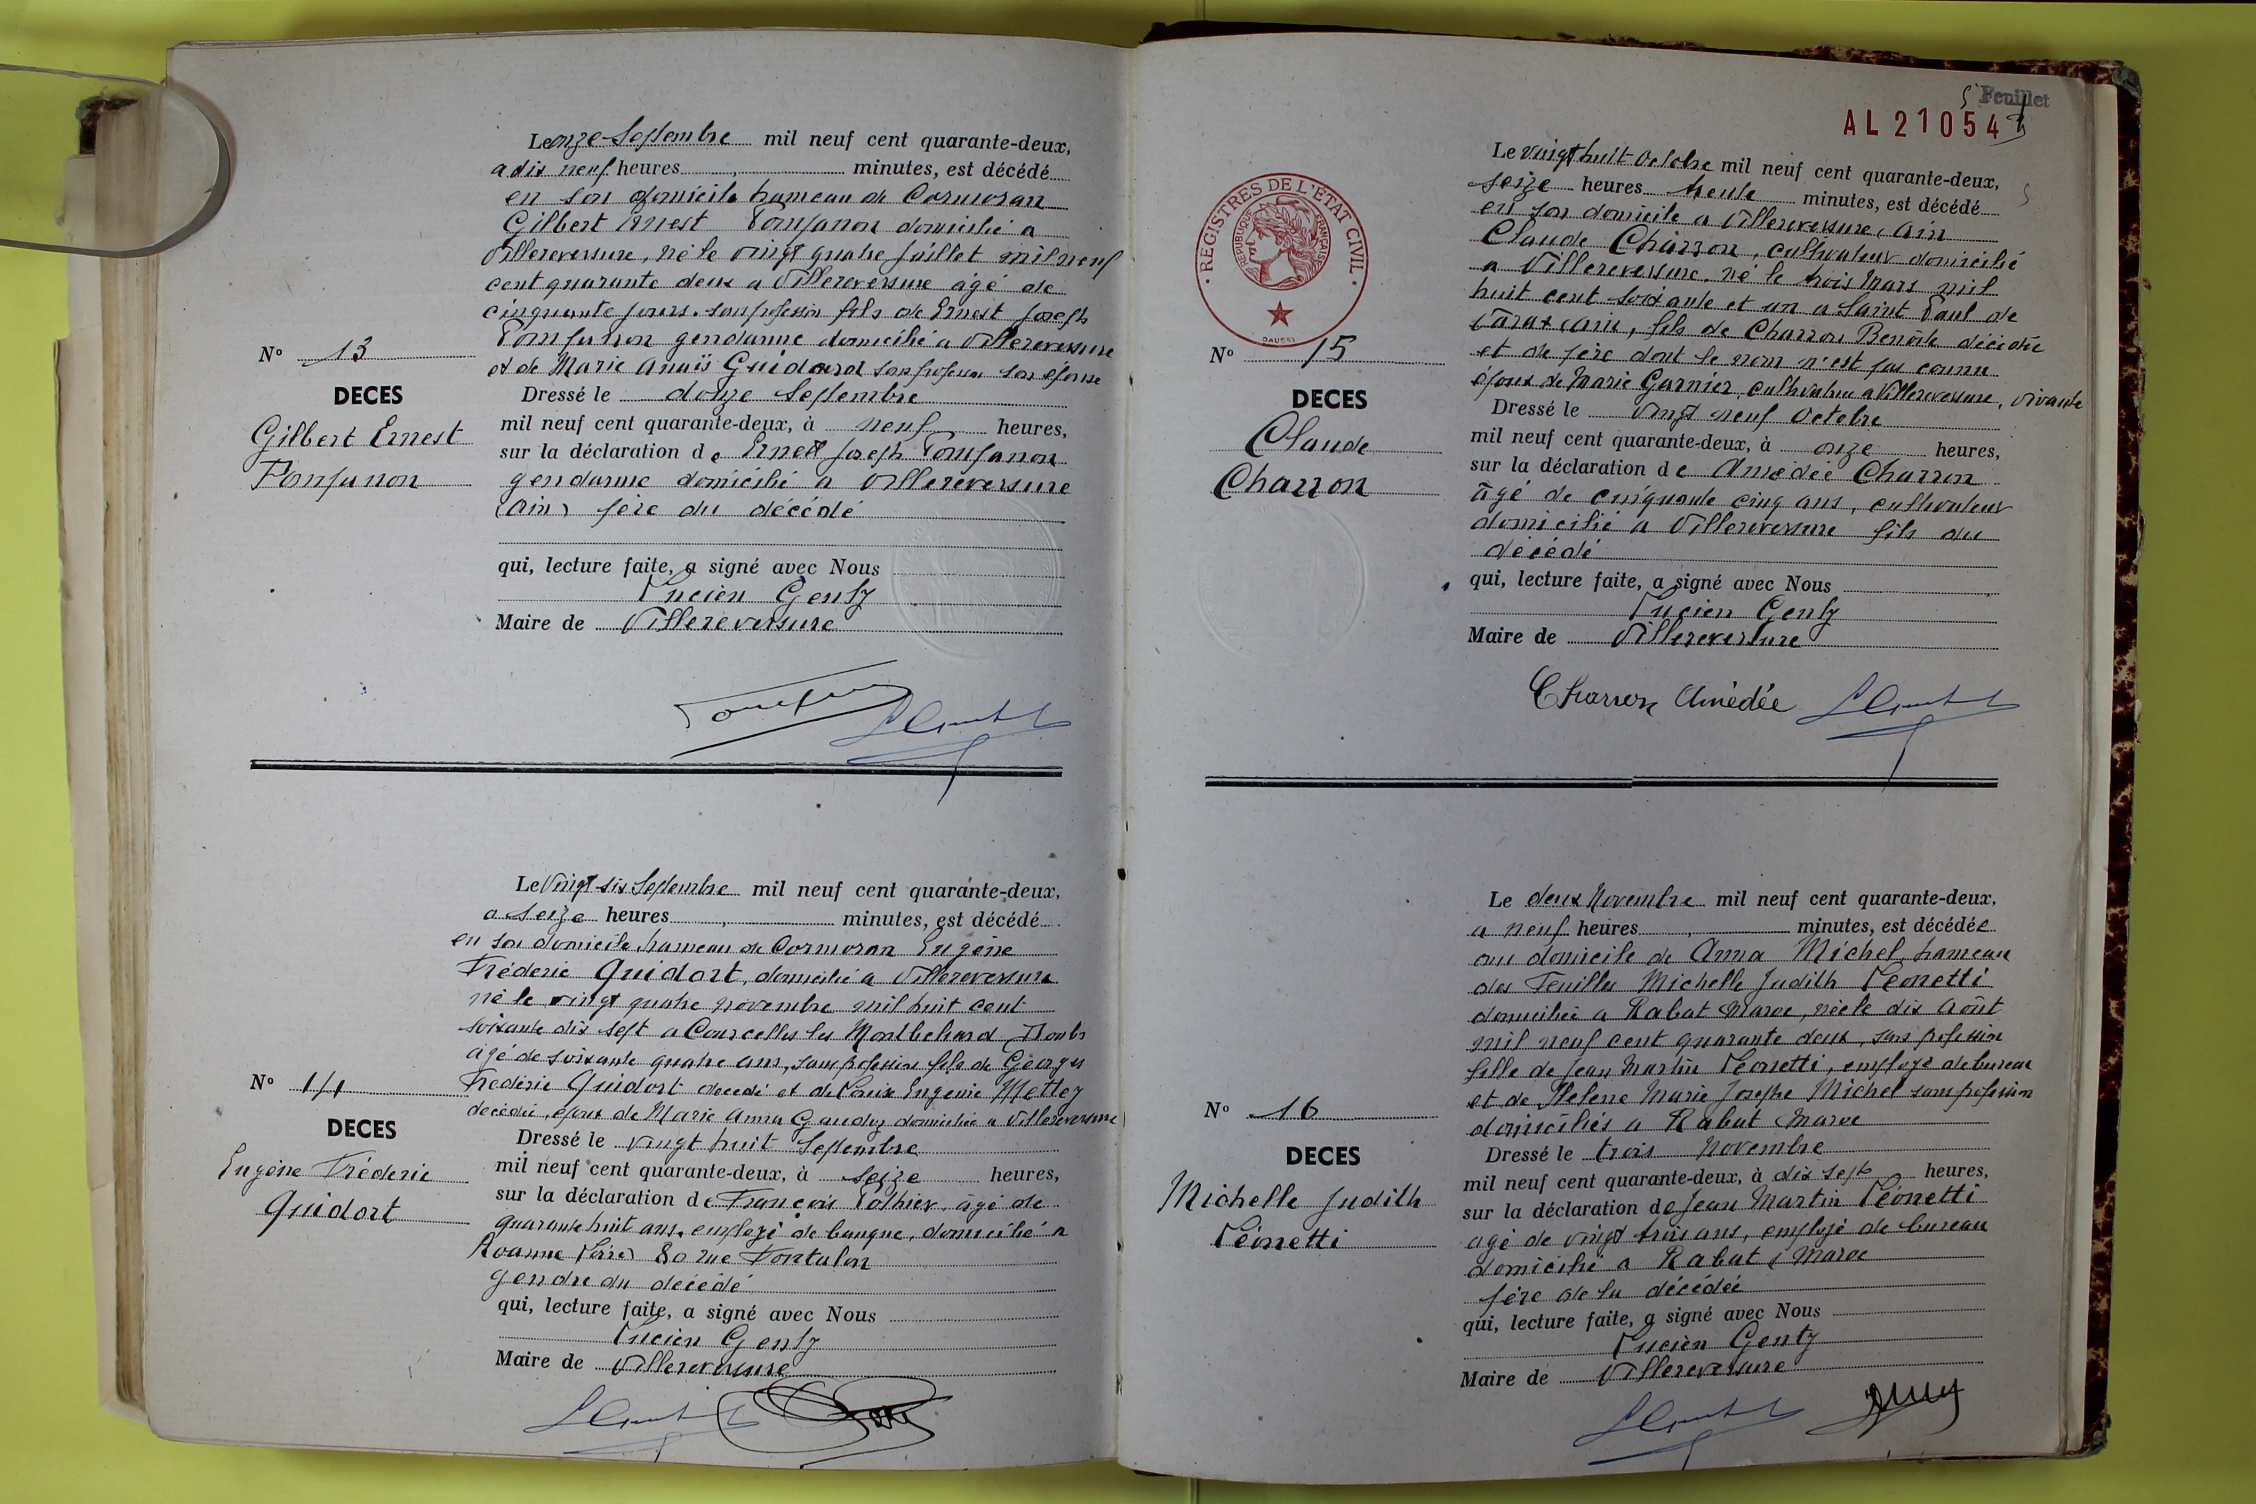 Le onze Septembre mil neuf cent quarante-deux,
a dix neuf heures, minutes, est décédé
en son domicile hameau de Cormoran
Gilbert Ernest Ponfanon domicilié a
Villereversure, né le vingt quatre juillet mil neuf
cent quarante deux a Villereversure âgé de
cinquante jours. sans profession fils de Ernest Joseph
Ponfanon gendarme domicilié a Villereversure
et de Marie Anaïs sans profession son épouse
N° 13
DECES
Gilbert Ernest
Ponfanon
Dressé le douze Septembre
mil neuf cent quarante-deux, à neuf heures,
sur la déclaration de Ernest Joseph Ponfanon
gendarme domicilié a Villereversure
(Ain) père du décédé
qui, lecture faite, a signé avec Nous
Lucien Genty
Maire de Villereversure
Le Vingt six Septembre mil neuf cent quarante-deux,
a seize heures, minutes, est décédé
en son domicile hameau de Cormoran Eugène
Fréderic Quidort, domicilié a Villereversure
né le vingt quatre novembre mil huit cent
soixante dix sept a Courcelles les Montbeliard, Doubs
âgé de soixante quatre ans, sans profession fils de Georges
Frederic Quidort decedé et de Louise Eugenie Mettey
decedée, epoux de Marie Anna domiciliée a Villereversure
N° 14
DECES
Eugène Fréderic
Quidort
Dressé le vingt huit Septembre
mil neuf cent quarante-deux, à seize heures,
sur la déclaration de François Pothier, âgé de
quarante huit ans, employé de banque, domicilié a
Roanne (Loire) 80 rue
gendre du décédé
qui, lecture faite, a signé avec Nous
Lucien Genty
Maire de Villereversure
Feuillet
5
AL 21054
REGISTRES DE L'ETAT CIVIL
REPUBLIQUE FRANÇAISE
Le vingt huit Octobre mil neuf cent quarante-deux,
seize heures trente minutes, est décédé
en son domicile a Villereversure, Ain
Claude Charron, cultivateur domicilié
a Villereversure. né le trois Mars mil
huit cent soixante et un a Saint Paul de
Varax (Ain), fils de Charron Benoîte décédée
et de père dont le nom n'est pas connu
époux de Marie Garnier, cultivatrice a Villereversure, vivante
N° 15
DECES
Claude
Charron
Dressé le vingt neuf Octobre
mil neuf cent quarante-deux, à onze heures,
sur la déclaration de Amédée Charron
âgé de cinquante cinq ans, cultivateur
domicilié a Villereversure fils du
décédé
qui, lecture faite, a signé avec Nous
Lucien Genty
Maire de Villereversure
Charron Amédée
Le deux Novembre mil neuf cent quarante-deux,
a neuf heures, minutes, est décédée
au domicile de Anna Michel, hameau
des Feuilles Michelle Judith Léonetti
domiciliée a Rabat Maroc, née le dix Août
mil neuf cent quarante deux, sans profession
fille de Jean Martin Léonetti, employé de bureau
et de Helene Marie Josephe Michel sans profession
domiciliés a Rabat Maroc
N° 16
DECES
Michelle Judith
Léonetti
Dressé le trois Novembre
mil neuf cent quarante-deux, à dix sept heures,
sur la déclaration de Jean Martin Léonetti
agé de vingt trois ans, employé de bureau
domicilié a Rabat (Maroc
père de la décédée
qui, lecture faite, a signé avec Nous
Lucien Genty
Maire de Villereversure